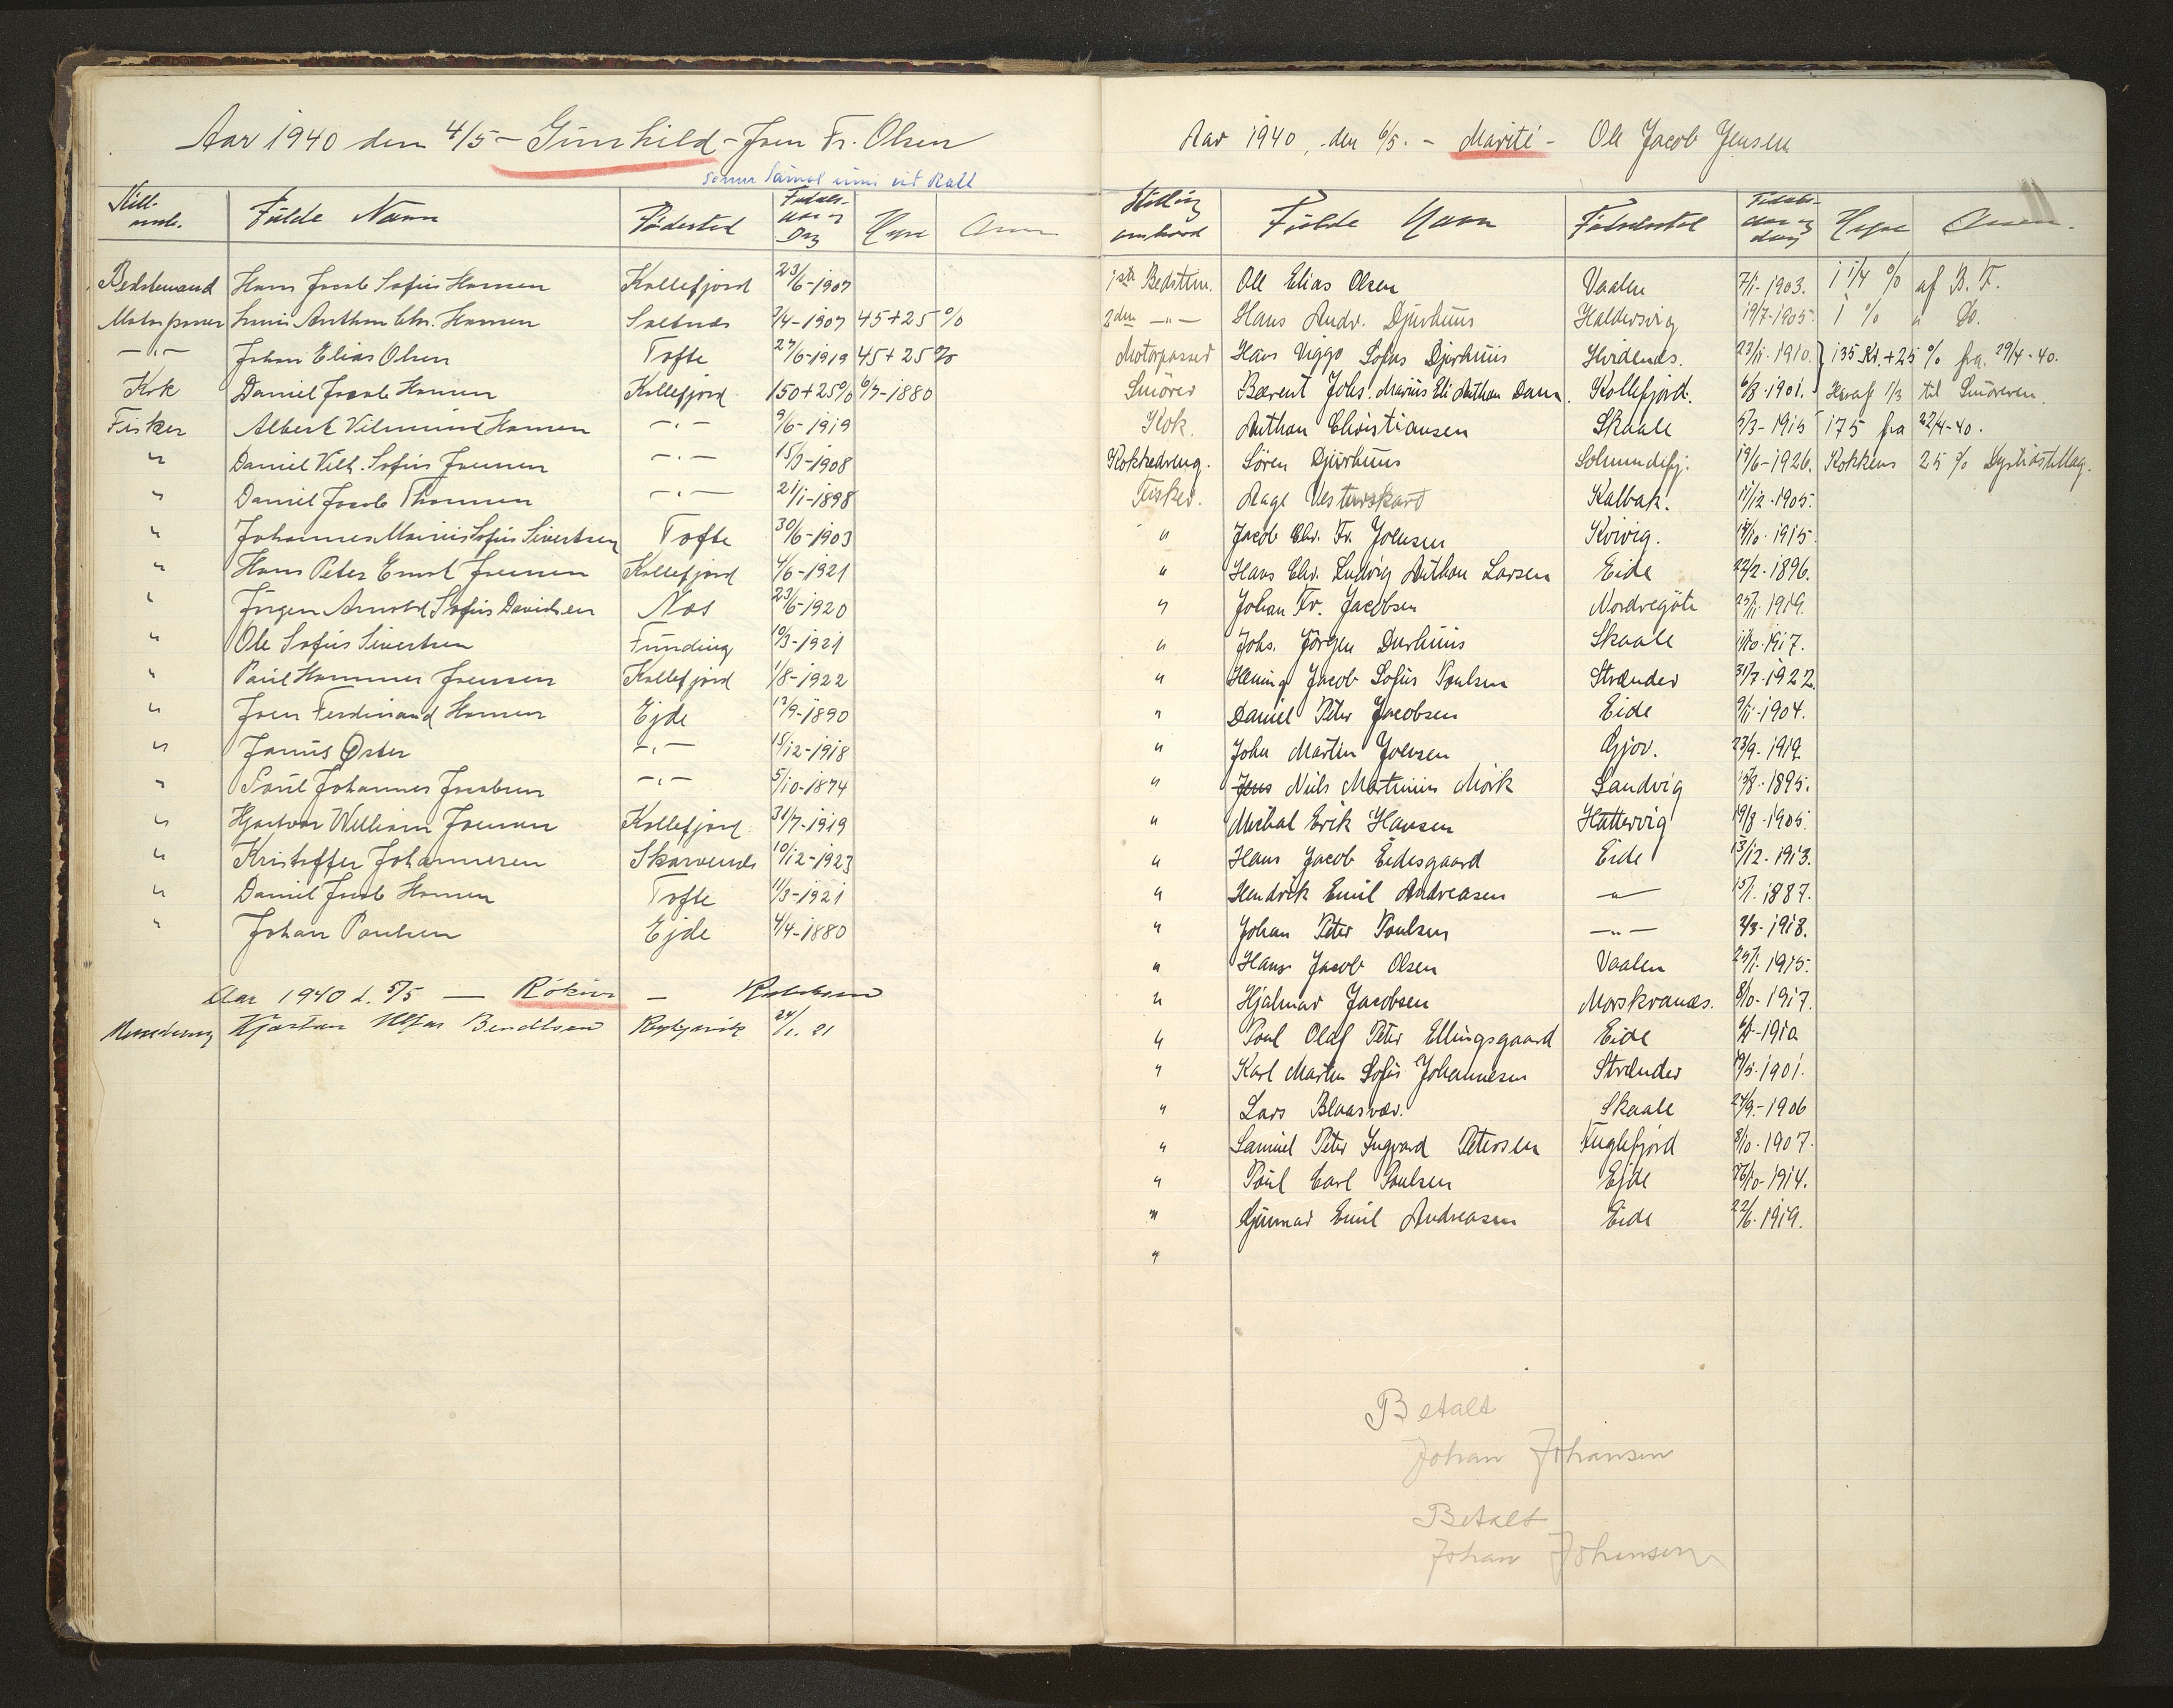 Aar 1940 den 4/5 - Gunhild - Joen Fr. Olsen
Fulde Navn Födested Fødsels-aar og Dag Hyre Anm
Bedstemand Hans Jacob Sofus Hansen Kollefjord 23/6-1907
Motorpasser Anthon Chr. Hansen Saltnes 2/4-1907 45+25 %
-"- Johan Elias Olsen Tofte 27/6-1919 45+25 %
Kok Daniel Jacob Hansen Kollefjord 150+25% 6/7-1880
Fisker Albert Hansen -"- 9/6-1919
" Daniel Vilh. Sofus Joensen -"- 15/9-1908
" Daniel Jacob Thomsen -"- 21/1-1898
" Johannes Marius Sofus Sivertsen Tofte 30/6-1903
" Hans Peter Ernst Joensen Kollefjord 4/6-1921
" Jörgen Arnold Sofus Davidsen Nes 23/6-1920
" Ole Sofus Sivertsen Funding 10/3-1921
" Paul Hammer Joensen Kollefjord 1/8-1922
" Joen Ferdinand Hansen Ejde 12/9-1890
" Janus Øster -"- 15/12-1918
" Poul Johannes Jacobsen -"- 5/10-1874
" Hjartvar William Joensen Kollefjord 31/7-1919
" Kristoffer Johannesen Skarvenes 10/12-1923
" Daniel Jacob Hansen Tofte 11/3-1921
" Johan Poulsen Ejde 4/4-1880
Aar 1940 d. 5/5 —
Kjartan Reykjavik 24/1. 21
Aar 1940, den 6/5. - Marité - Ole Jacob Jensen
Stilling ombord Fulde Navn Födselssted Födsels-aar og dag Hyre Anm.
1ste Bedstm. Ole Elias Olsen Vaalen 7/1-1903. 1 1/4 % af B. F.
2den -"- Hans Andr. Djurhuus Haldersvig 19/7-1905. 1 % " Do.
Motorpasser Hans Viggo Sofus Djurhuus Hvidenæs. 23/11-1910. 135 Kr.+25 % fra 29/4-40.
Smörer Bærent Johs. Marius Eli Anthon Dam. Kollefjord. 6/8-1901. Heraf 1/3 til Smöreren.
Kok. Anthon Christiansen Skaale 5/3-1915 175 fra 22/4-40.
Kokkedreng. Sören Djurhuus Solmundefj. 19/6-1926. Kokkens 25 % Dyrtidstillæg.
Fisker. Aage Vesturskarð Kalbak. 11/12-1905.
" Jacob Chr. Fr. Joensen Kvivig. 14/10-1915.
" Hans Chr. Ludvig Anthon Larsen Eide 22/2-1896.
" Johan Fr. Jacobsen Nordregöte 25/11-1919.
" Johs. Jörgen Durhuus Skaale 11/10-1917.
" Hening Jacob Sofus Poulsen Strænder 31/7-1922.
" Daniel Peter Jacobsen Eide 9/11-1904.
" John Martin Joensen Gjov. 23/9-1919
" Jens Niels Martinus Mörk Sandvig 15/8-1895.
" Michal Erik Hansen Hattervig 19/8-1905.
" Hans Jacob Eidesgaard Eide 13/12-1913.
" Hendrik Emil Andreasen -"- 15/1. 1887.
" Johan Peter Poulsen -"- 2/3-1918.
" Hans Jacob Olsen Vaalen 25/1. 1915.
" Hjalmar Jacobsen Morskranes. 8/10-1917.
" Poul Olaf Peter Ellingsgaard Eide
" Karl Martin Sofus Johannesen Strænder 19/5-1901.
" Lars Blaasvær. Skaale 24/9-1906
" Samuel Peter Ingvard Petersen Fuglefjord 8/10-1907.
" Poul Carl Poulsen Ejde 26/10-1914.
" Gunnar Emil Andreasen Eide 22/6-1919.
"
Betalt
Johan Johansen
Betalt
Johan Johansen